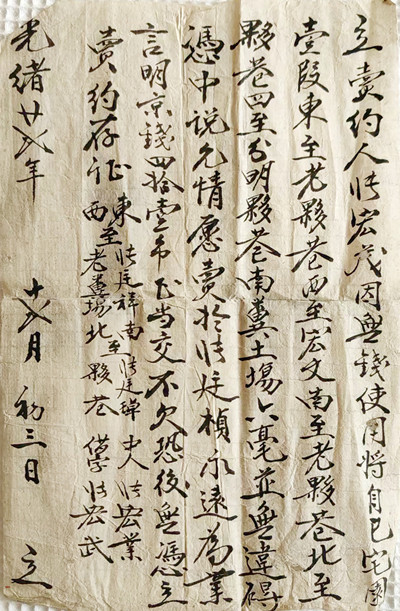 立賣約人張宏茂因無錢使用將自己宅園
壹段東至老夥巷西至宏文南至老夥巷北至
夥巷四至分明夥巷南糞土場六毫並無違碍
憑中說允情愿賣於張廷楨永遠為業
言明京錢四拾壹吊正当交不欠恐後無憑立
賣約存证
東至張廷祥南至張廷璋 中人張宏業
西至老糞場北至夥巷 張宏武
光緒廿弍年 十弍月 初三日 立